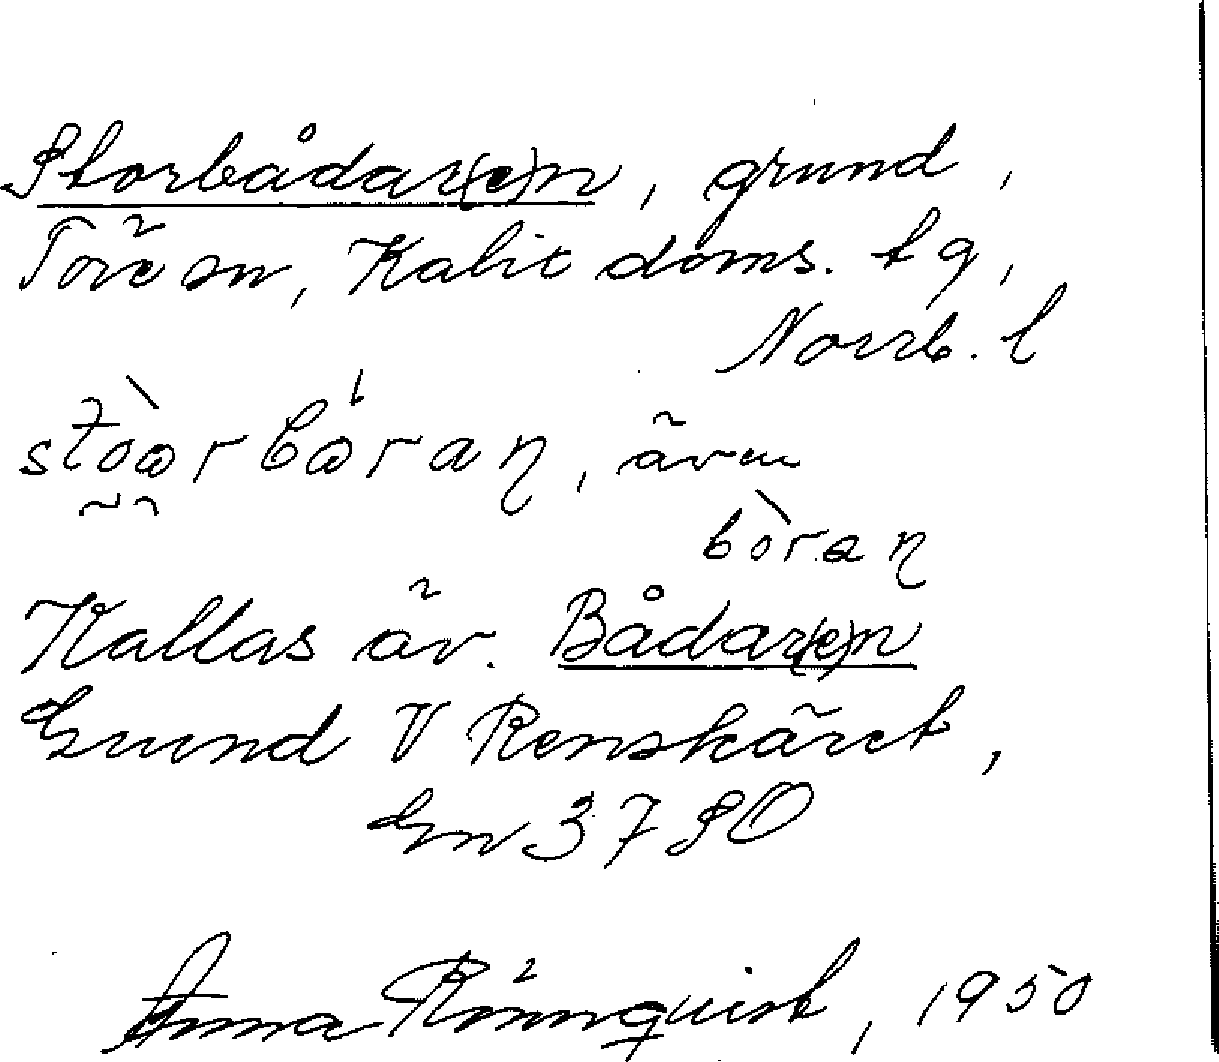 Storbådar(e)n, grund,
Töre sn, Kalix doms. tg,
Norrb. l
Kallas äv. Bådar(e)n
Grund V Renskäret,
Gn 37 SO
Anna Rönnquist, 1950